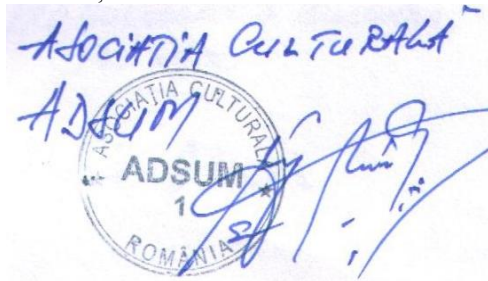 ASOCIAȚIA CULTURALĂ
ADSUM
ASOCIAȚIA CULTURALĂ
ADSUM
1
ROMÂNIA